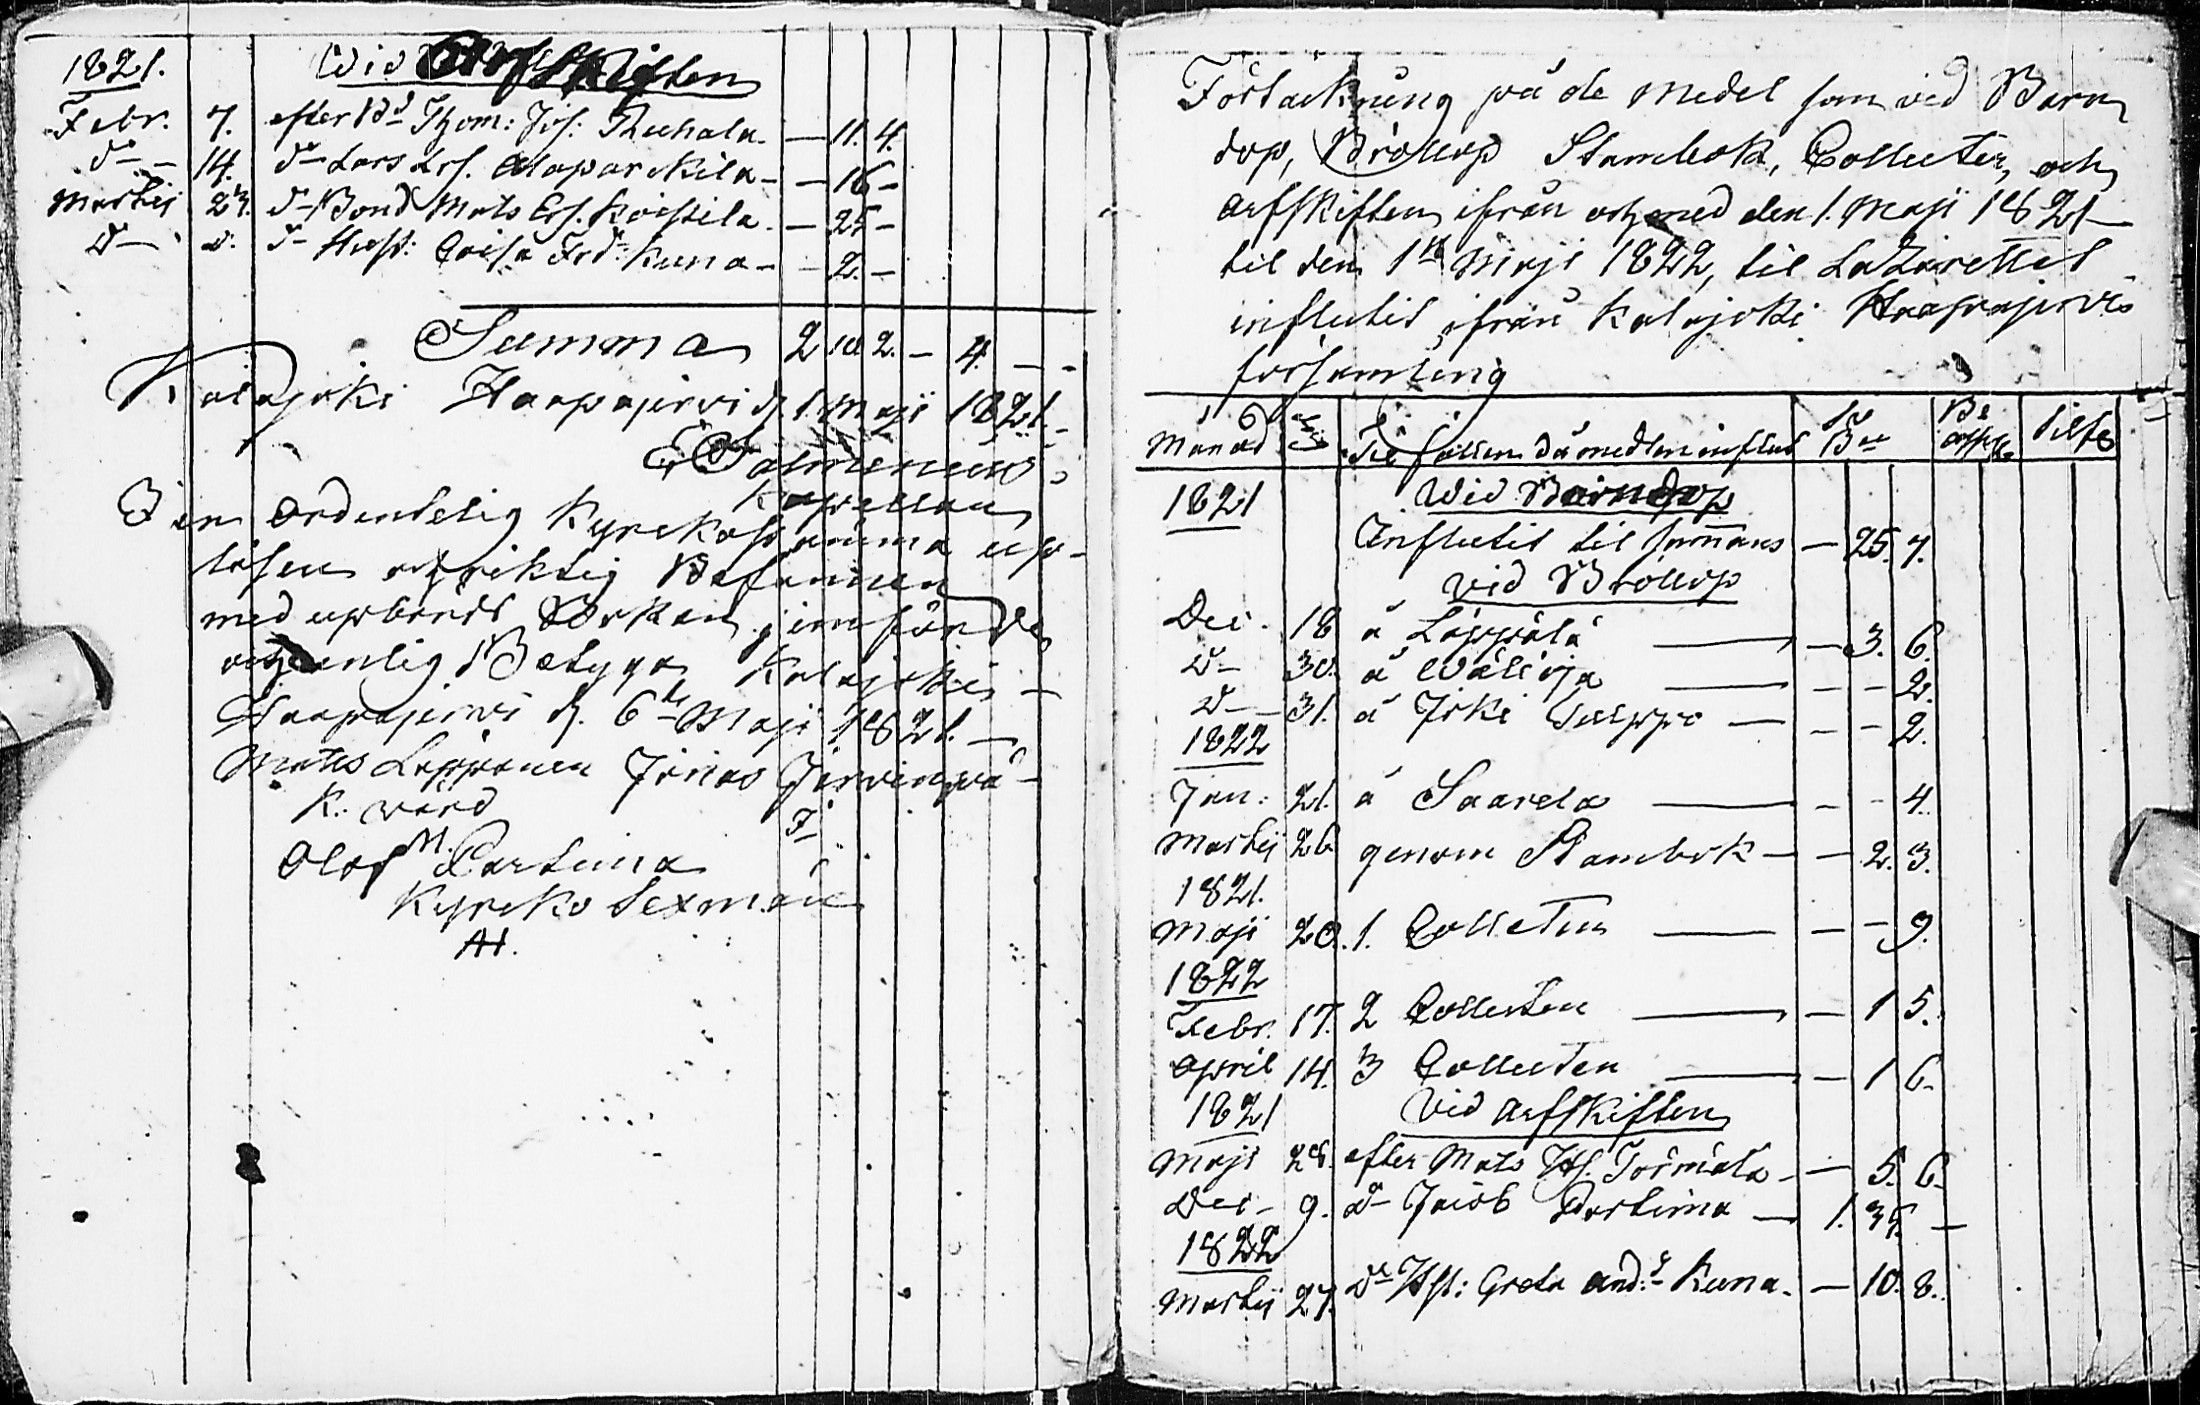 1821. Wid Arfskiften
Febr. 7. efter Bd Thom: Jos: — 11. 4.
do — 14. do Lars Ers. Alaparckila — — 16 —
Martij 27. do Bond Mats Ers. Koistila — 25 —
do do. do Hust: Caisa Frd: Kuna — — 2. —
Summa 2 102. — 4. — -
Kalajoki Haapajerwi d. 1 Maji 1821.
E Salmenius
Kapellan
I en ordentelig Kyrckostämma up-
läsen och riktig Befunnen
med upbörds Boken jemförd
enlig Betyga Kalajoki —
Haapajerwi d. 6te Maji 1821. —
Mats Leppänen Jonas Jerwenpä —
K. wärd
Olof M. Partima
Kyrcko Sexman
Förteckning på de medel som vid Barn
dop, Bröllop Stambok, Collecter, och
arfskiften ifrån och med den 1. Maji 1821 —
til den 1ste Maji 1822, til Lazarettet
influtit ifrån Kalajoki Haapajerwi
församling
Månad Tilfällen då medlen influtit
1821 Wid Barndop
Influtit til sammans — 25. 7.
vid Bröllop
Dec. 18 å Löppälä — — 3. 6.
do — 30. å Wälioja — — — 2.
do — 31. å Joki — — — 2.
1822
Jan: 21. å Saarela — — — 4.
Martij 26 genom Stambok — — 2. 3.
1821.
Maji 20. 1. Collecten — — — 9.
1822
Febr. 17. 2 Collecten — — 1 5.
April 14. 3 Collecten — — 1 6.
1821 Vid arfskiften
Maji 28. efter Mats Hs. Törmälä — — 5. 6.
Dec — 9. do Jacob Partima — 1. 35. —
1822
Martij 27. do Hst: Greta And: Kuna. — 10. 8.